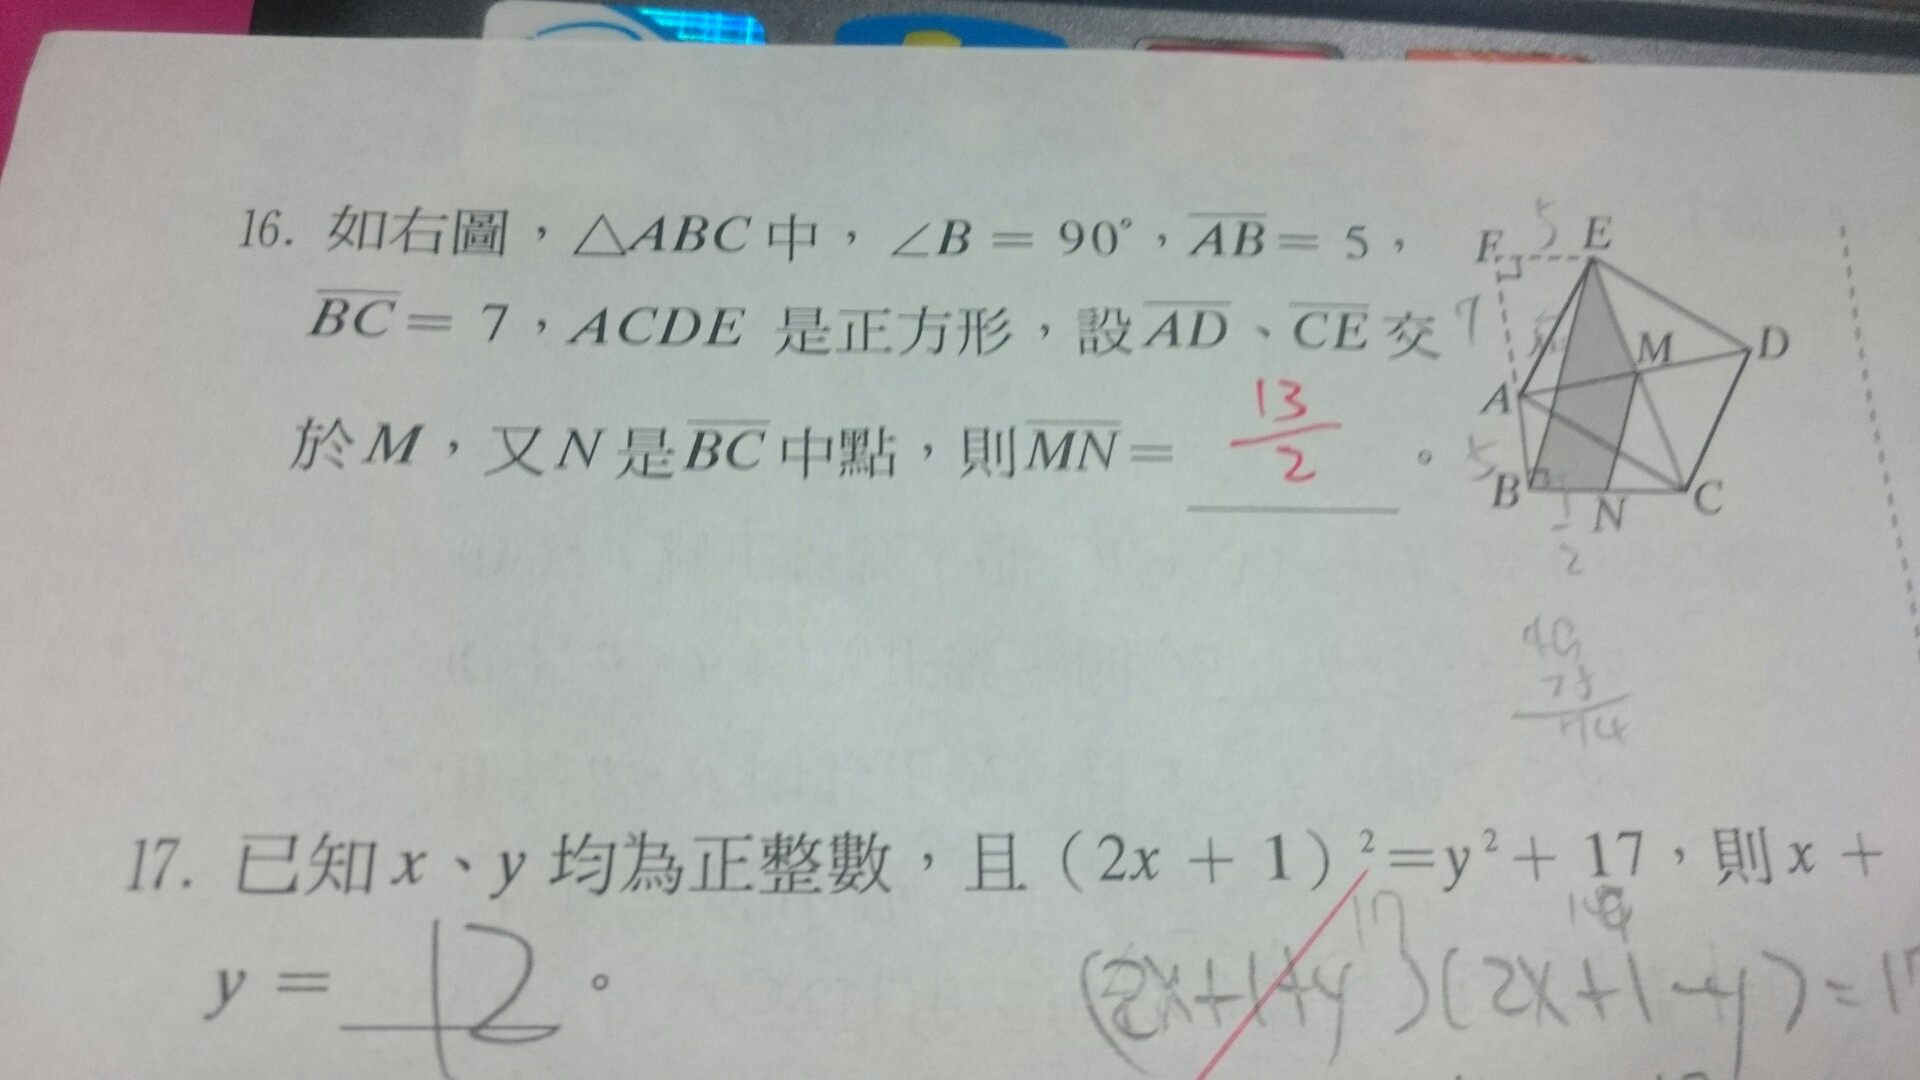 16. 如右圖，△ABC 中，∠B = 90°，AB = 5，
BC = 7，ACDE 是正方形，設 AD、CE 交
於 M，又 N 是 BC 中點，則 MN = 13/2 。
F 5 E
7 M D
A
5
B N C
1/2
49
74
17. 已知 x、y 均為正整數，且（2x + 1）²=y²+ 17，則 x +
y = 12 。
17
(2x+1+y)(2x+1-y)=17